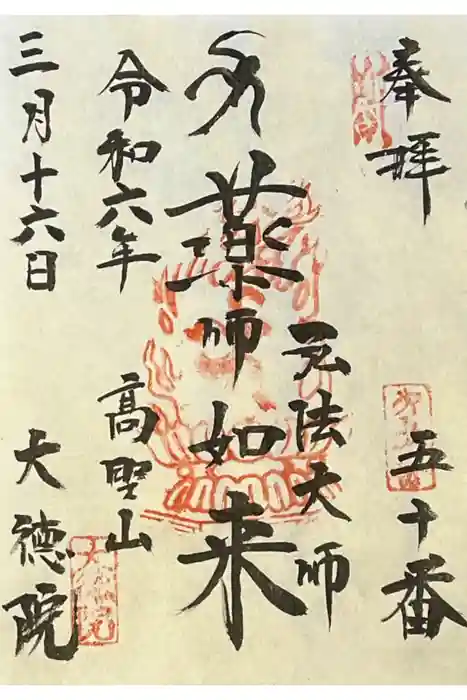 奉拝
五十番
弘法大師
薬師如来
令和六年
高埜山
三月十六日
大徳院